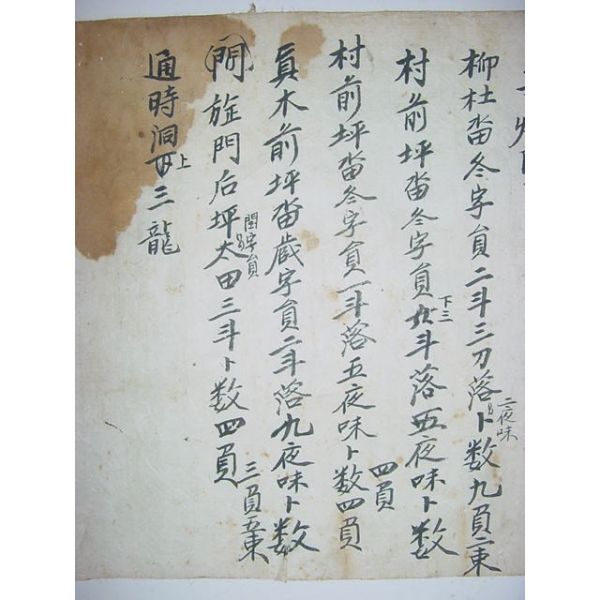 柳杜畓冬字員二斗三刀落二夜味卜数九負二束
村前坪畓冬字負下三斗落五夜味卜数四負
村前坪畓冬字負一斗落五夜味卜数四負
員木前坪畓歲字員二斗落九夜味卜数三負五束
閠旋門后坪閏字員太田三斗卜数四負
通時洞上三龍